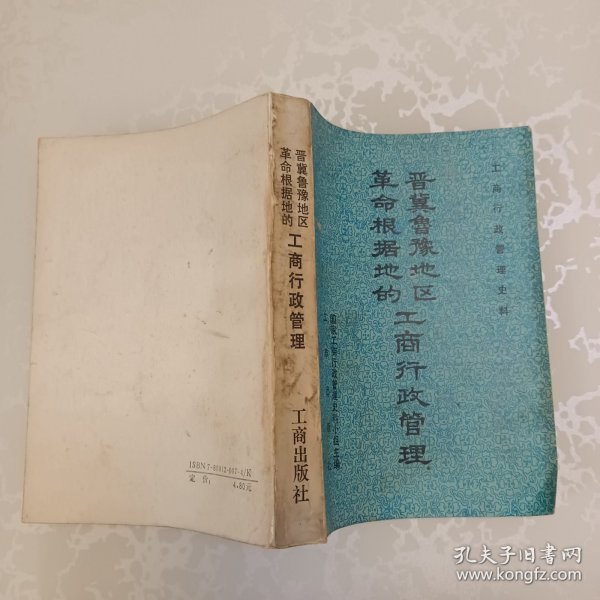 工商行政管理史料
晋冀鲁豫地区
革命根据地的
工商行政管理
晋冀鲁豫地区
革命根据地的
工商行政管理
工商出版社
定价: 4.80元
孔夫子旧书网
www.kongfz.com